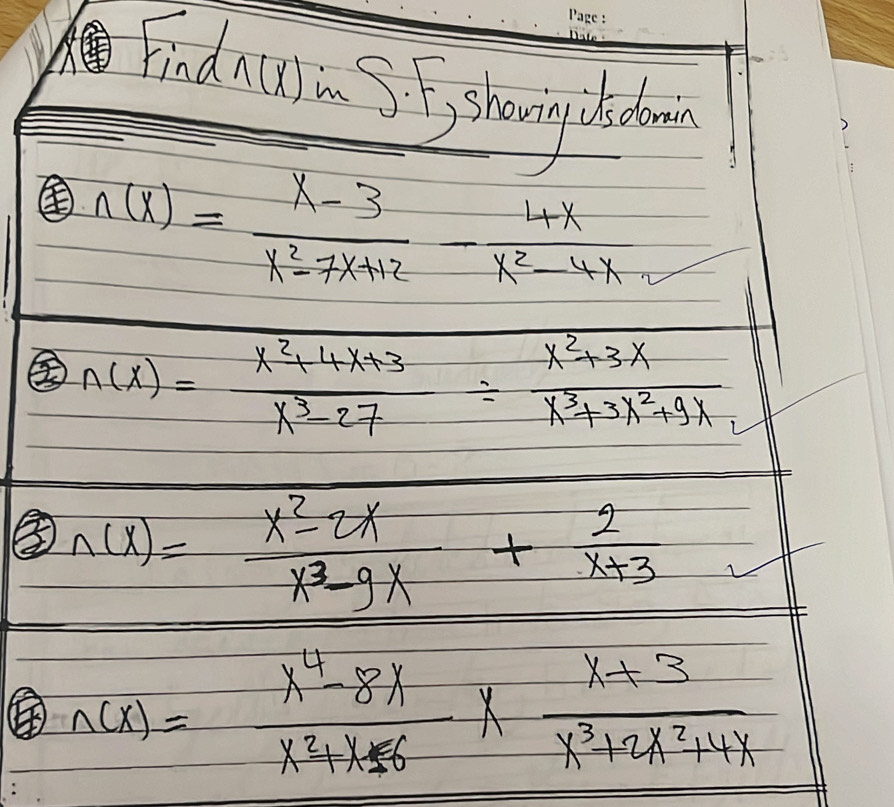 Page :
Date :
Find n(x) in S.F, showing its domain
① n(x) = \frac{x-3}{x²-7x+12} - \frac{4x}{x²-4x}
② n(x) = \frac{x²+4x+3}{x³-27} ÷ \frac{x²+3x}{x³+3x²+9x}
③ n(x) = \frac{x²-2x}{x³-9x} + \frac{2}{x+3}
④ n(x) = \frac{x⁴-8x}{x²+x-6} × \frac{x+3}{x³+2x²+4x}